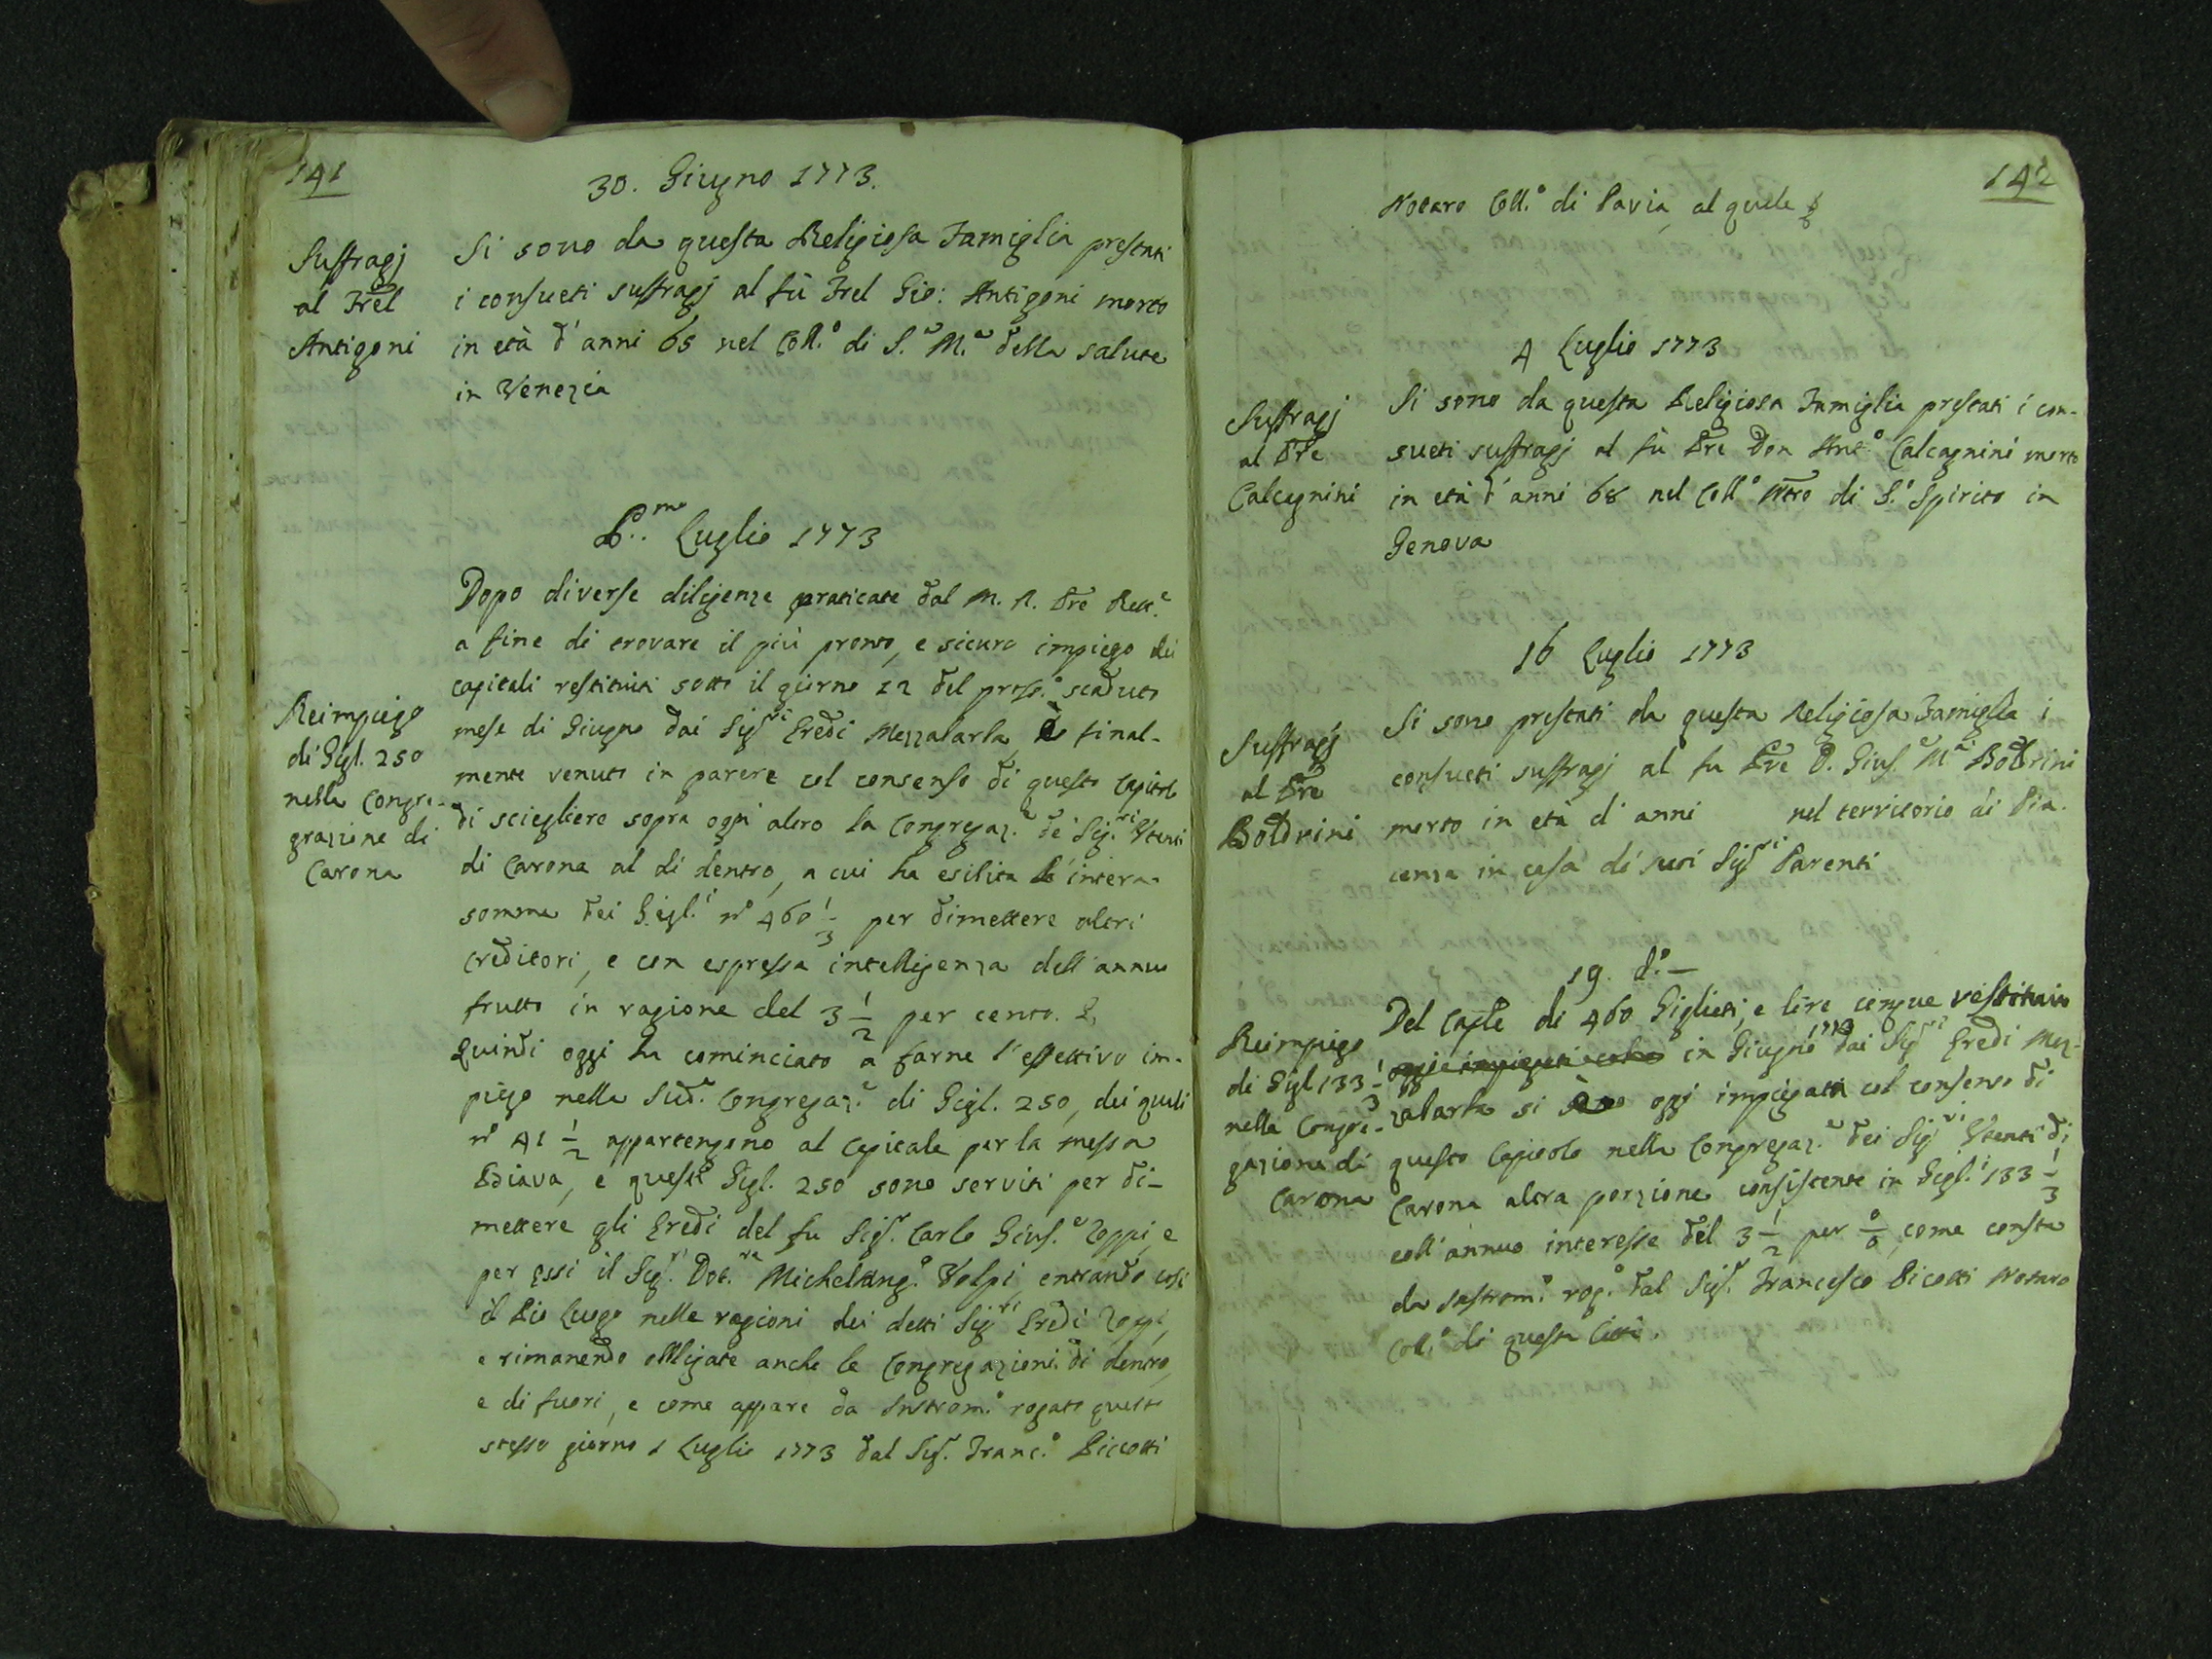 141
30. Giugno 1773.
Suffragj
al Frel
Antigoni
Si sono da questa Religiosa Famiglia prestati
i consueti suffragj al fù Frel Gio: Antigoni morto
in età d'anni 65 nel Coll.º di S.ª M.ª della salute
in Venezia
P.mo Luglio 1773
Reimpiego
di Gigl. 250
nella Congre-
grazione di
Carona
Dopo diverse diligenze praticate dal M. R. Pre Rett.e
a fine di trovare il più pronto, e sicuro impiego dei
capitali restituiti sotto il giorno 12 del pross.º scaduto
mese di Giugno dai Sigri Eredi Mezzabarba, è final-
mente venuto in parere col consenso di questo Capitolo
di scieglere sopra ogni altro la Congregaz.e de' Sig.ri Utenti
di Carona al di dentro, a cui ha esibita l'intera
somma dei Gigl.i nº 460 1/3 per dimettere altri
creditori, e con espressa intelligenza dell'annuo
frutto in ragione del 3 1/2 per cento.
Quindi oggi ha cominciato a farne l'effettivo im-
piego nella Sud.a Congregaz.e di Gigl. 250, dei quali
nº 41 1/2 appartengono al Capitale per la messa
Biava, e questi Gigl. 250 sono serviti per di-
mettere gli Eredi del fu Sigr. Carlo Gius.e Zoppi, e
per essi il Sigr. Dot.re Michelang.º Volpi, entrando così
il Pio Luogo nelle ragioni dei detti Sigri Eredi Zoppi,
e rimanendo obbligate anche le Congregazioni di dentro,
e di fuori, e come appare da Instrom.º rogato questo
stesso giorno 1 Luglio 1773 dal Sigr. Franc.º Piccotti
142
Notaro Coll.º di Pavia, al quale
4 Luglio 1773
Suffragj
al Pre
Calcagnini
Si sono da questa Religiosa Famiglia prestati i con-
sueti suffragj al fù Pre Don Ant.º Calcagnini morto
in età d'anni 68 nel Coll.º Ntro di S.º Spirito in
Genova
16 Luglio 1773
Suffragj
al Pre
Boldrini
Si sono prestati da questa Religiosa Famiglia i
consueti suffragj al fu Pre D. Gius.e M.a Boldrini
morto in età d'anni nel territorio di Pia-
cenza in casa di suoi Sigri Parenti
19. d.º
Reimpiego
di Gigl. 133 1/3
nella Congre-
gazione di
Carona
Del Caple di 460 Gigliati, e lire cinque restituito
in Giugno 1773 dai Sigri Eredi Mez-
zabarba si è oggi impiegata col consenso di
questo Capitolo nella Congregaz.e dei Sigri Utenti di
Carona altra porzione consistente in Gigl.i 133 1/3
coll'annuo interesse del 3 1/2 per 0/0, come consta
da Instrom.º rog.º dal Sigr. Francesco Picotti Notaro
Coll.º di questa Città.